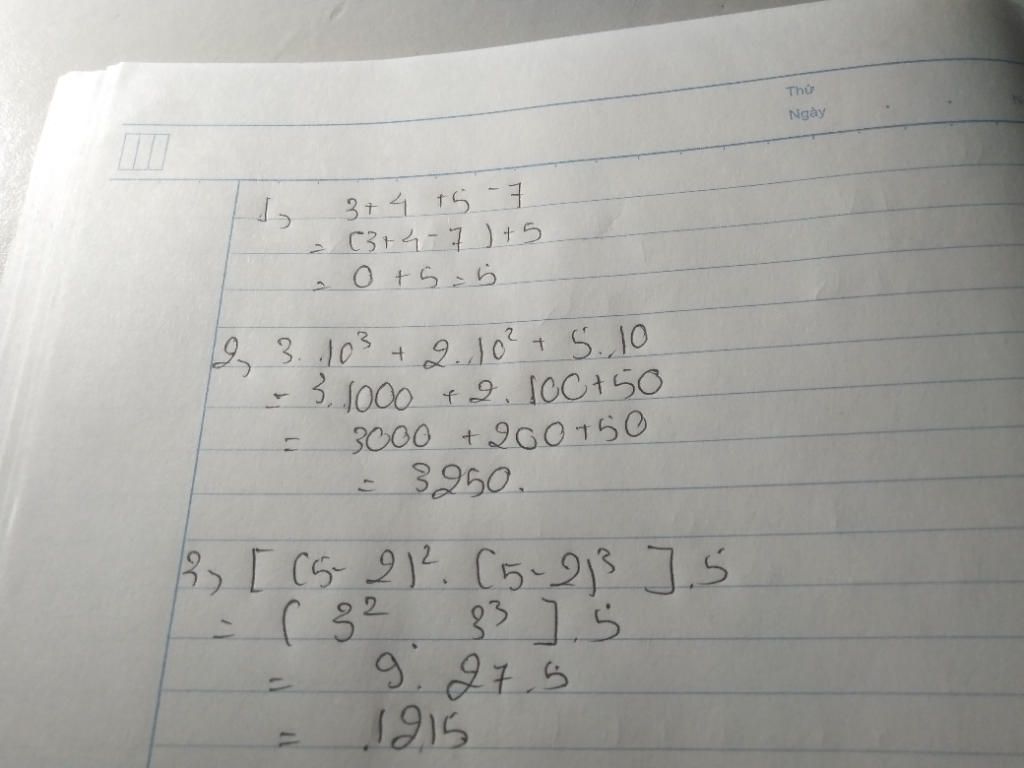 Thứ
Ngày
1, 3 + 4 + 5 - 7
= (3 + 4 - 7) + 5
= 0 + 5 = 5
2, 3 . 10³ + 2 . 10² + 5 . 10
= 3 . 1000 + 2 . 100 + 50
= 3000 + 200 + 50
= 3250.
3, [(5 - 2)² . (5 - 2)³] . 5
= ( 3² . 3³ ] . 5
= 9 . 27 . 5
= 1215